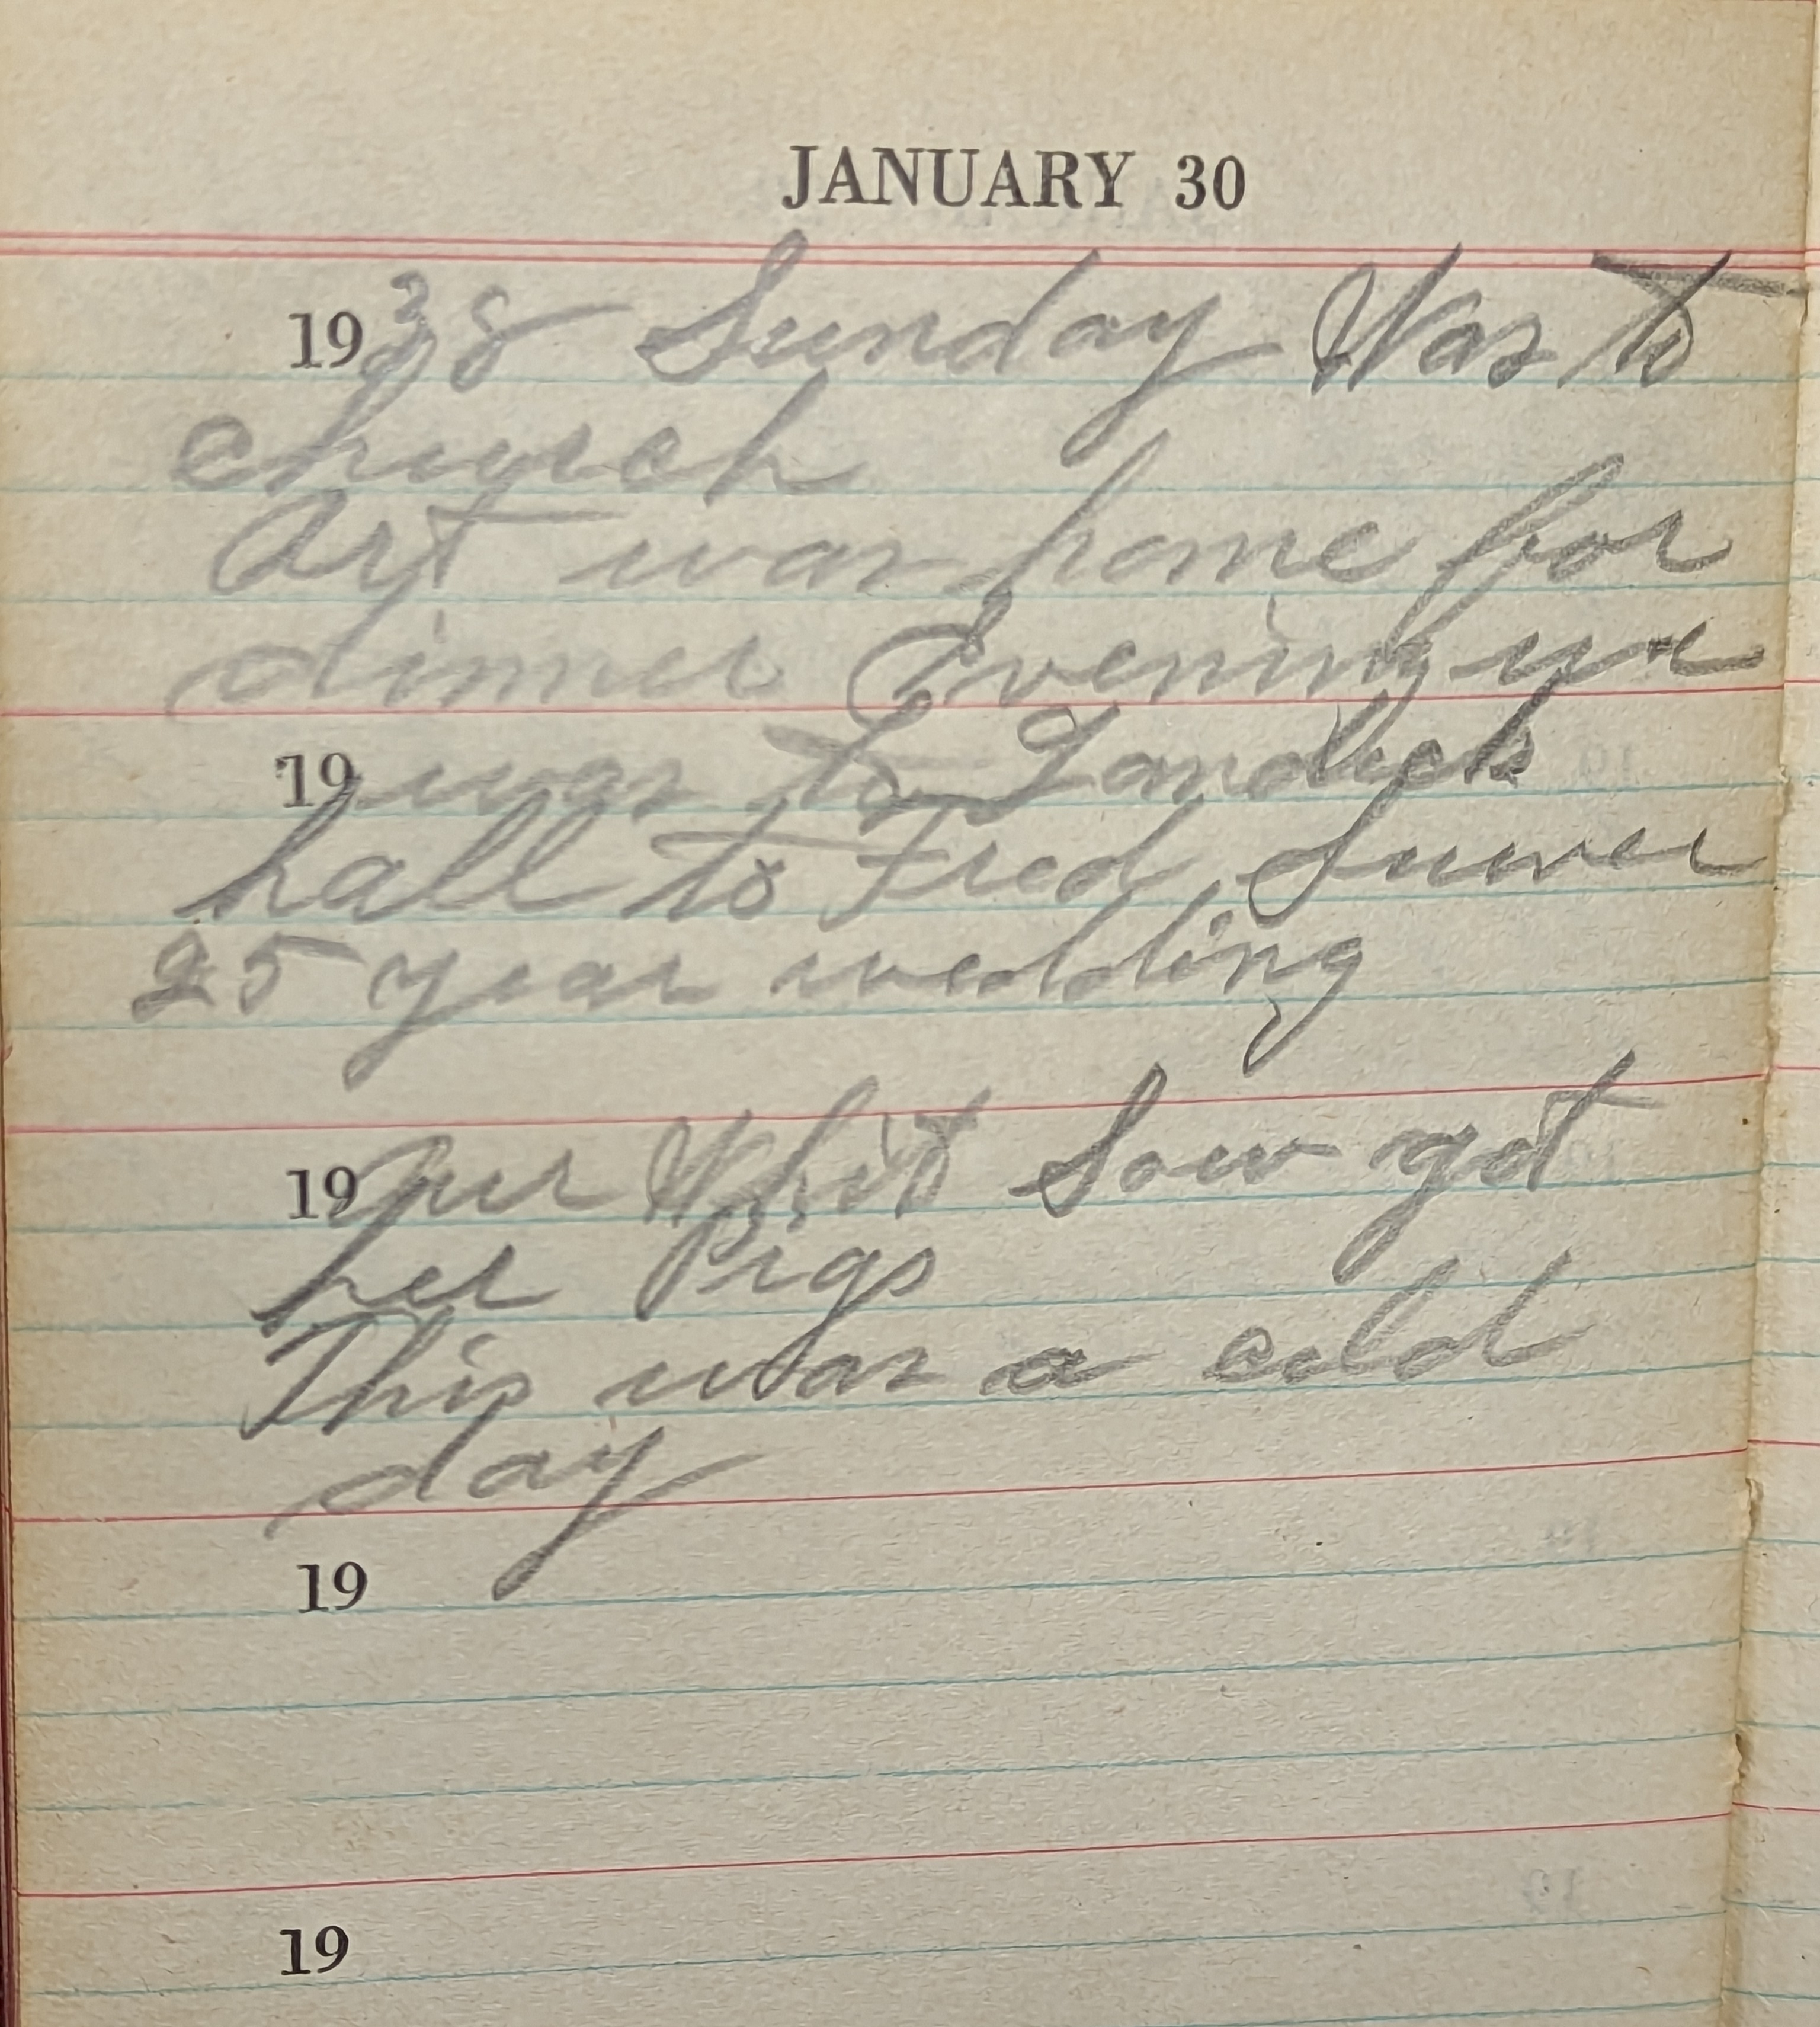 JANUARY 30
1938 Sunday Was to
church
Art was home for
dinner Evening we
19 was to
hall to Fred
25 year wedding
19 our Whit Sow got
her Pigs
This was a cold
day
19
19